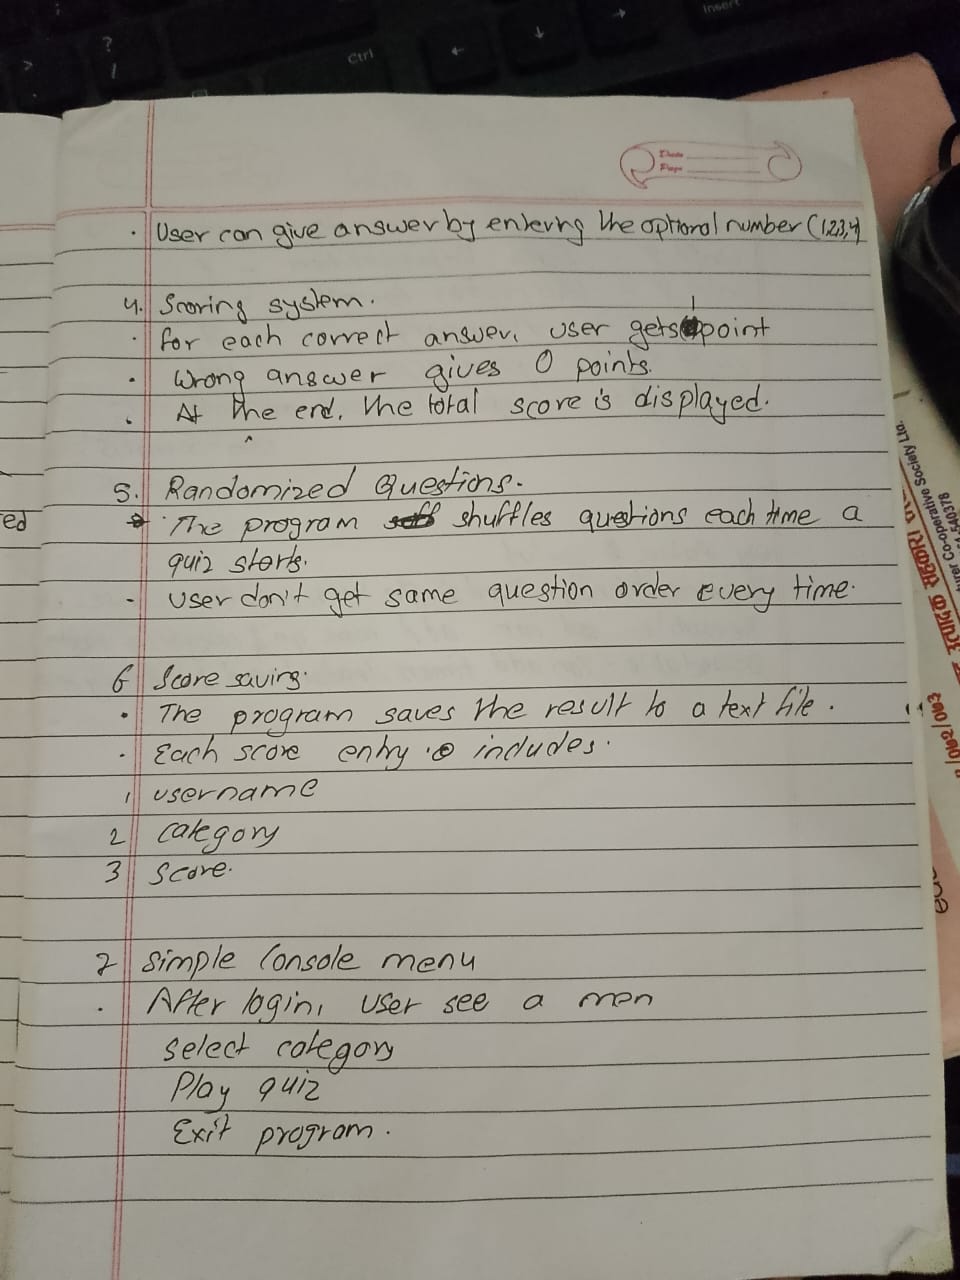 ?
/
>
Ctrl
←
↓
→
Insert
Date
Page
· User can give answer by entering the optional number (1,2,3,4)
4. Scoring system.
· for each correct answer, user gets 1 point
· Wrong answer gives 0 points.
· At the end, the total score is displayed.
5. Randomized Questions.
ed
· The program shuffles questions each time a
quiz starts.
- User don't get same question order every time.
6 Score saving.
· The program saves the result to a text file.
· Each score entry includes.
1 username
2 category
3 score.
7 Simple Console menu
· After login, user see a men
Select category
Play quiz
Exit program.
Co-operative Society Ltd.
540378